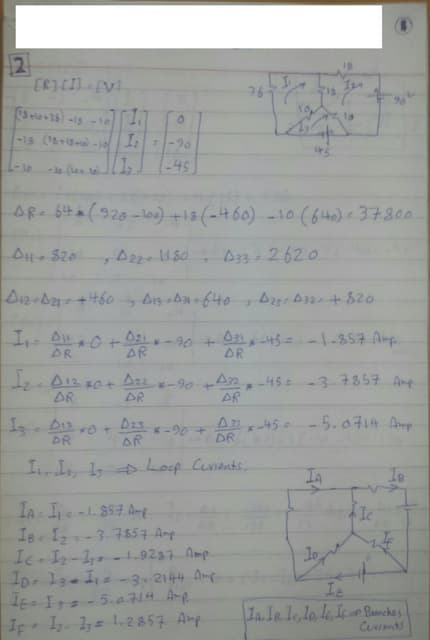 2
[R][I]=[V]
I₁ 0
I₂ = -90
I₃ -45
18
I₁ 18 I₂ 90
10
I₃
45
ΔR = 64*(920-100)+18(-460)-10(640)=37800
Δ11 = 820 , Δ22 = 1180 , Δ33 = 2620
Δ12=Δ21=+460 , Δ13=Δ31=640 , Δ23=Δ32=+820
I₁ = Δ11/ΔR *0 + Δ21/ΔR *-90 + Δ31/ΔR *-45 = -1.857 Amp
I₂ = Δ12/ΔR *0 + Δ22/ΔR *-90 + Δ32/ΔR *-45 = -3.7857 Amp
I₃ = Δ13/ΔR *0 + Δ23/ΔR *-90 + Δ33/ΔR *-45 = -5.0714 Amp
I₁, I₂, I₃ ⇒ Loop Currents.
IA IB
IC
ID IF
IE
IA = I₁ = -1.857 Amp
IB = I₂ = -3.7857 Amp
IC = I₂-I₁ = -1.9287 Amp
ID = I₃-I₁ = -3.2144 Amp
IE = I₃ = -5.0714 Amp
IF = I₂-I₃ = 1.2857 Amp
IA, IB, IC, ID, IE, IF ⇒ Branches
Currents